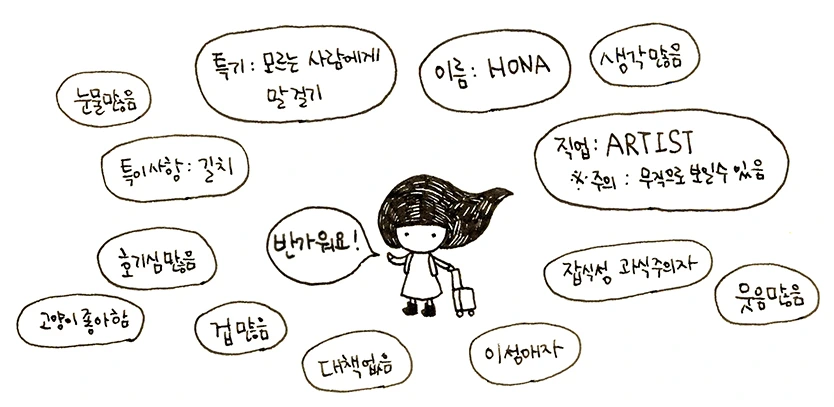 특기 : 모르는 사람에게
말 걸기
이름 : HONA
생각많음
눈물많음
직업 : ARTIST
※주의 : 무직으로 보일수 있음
특이사항 : 길치
반가워요!
호기심많음
잡식성 과식주의자
웃음많음
고양이좋아함
겁많음
대책없음
이성애자